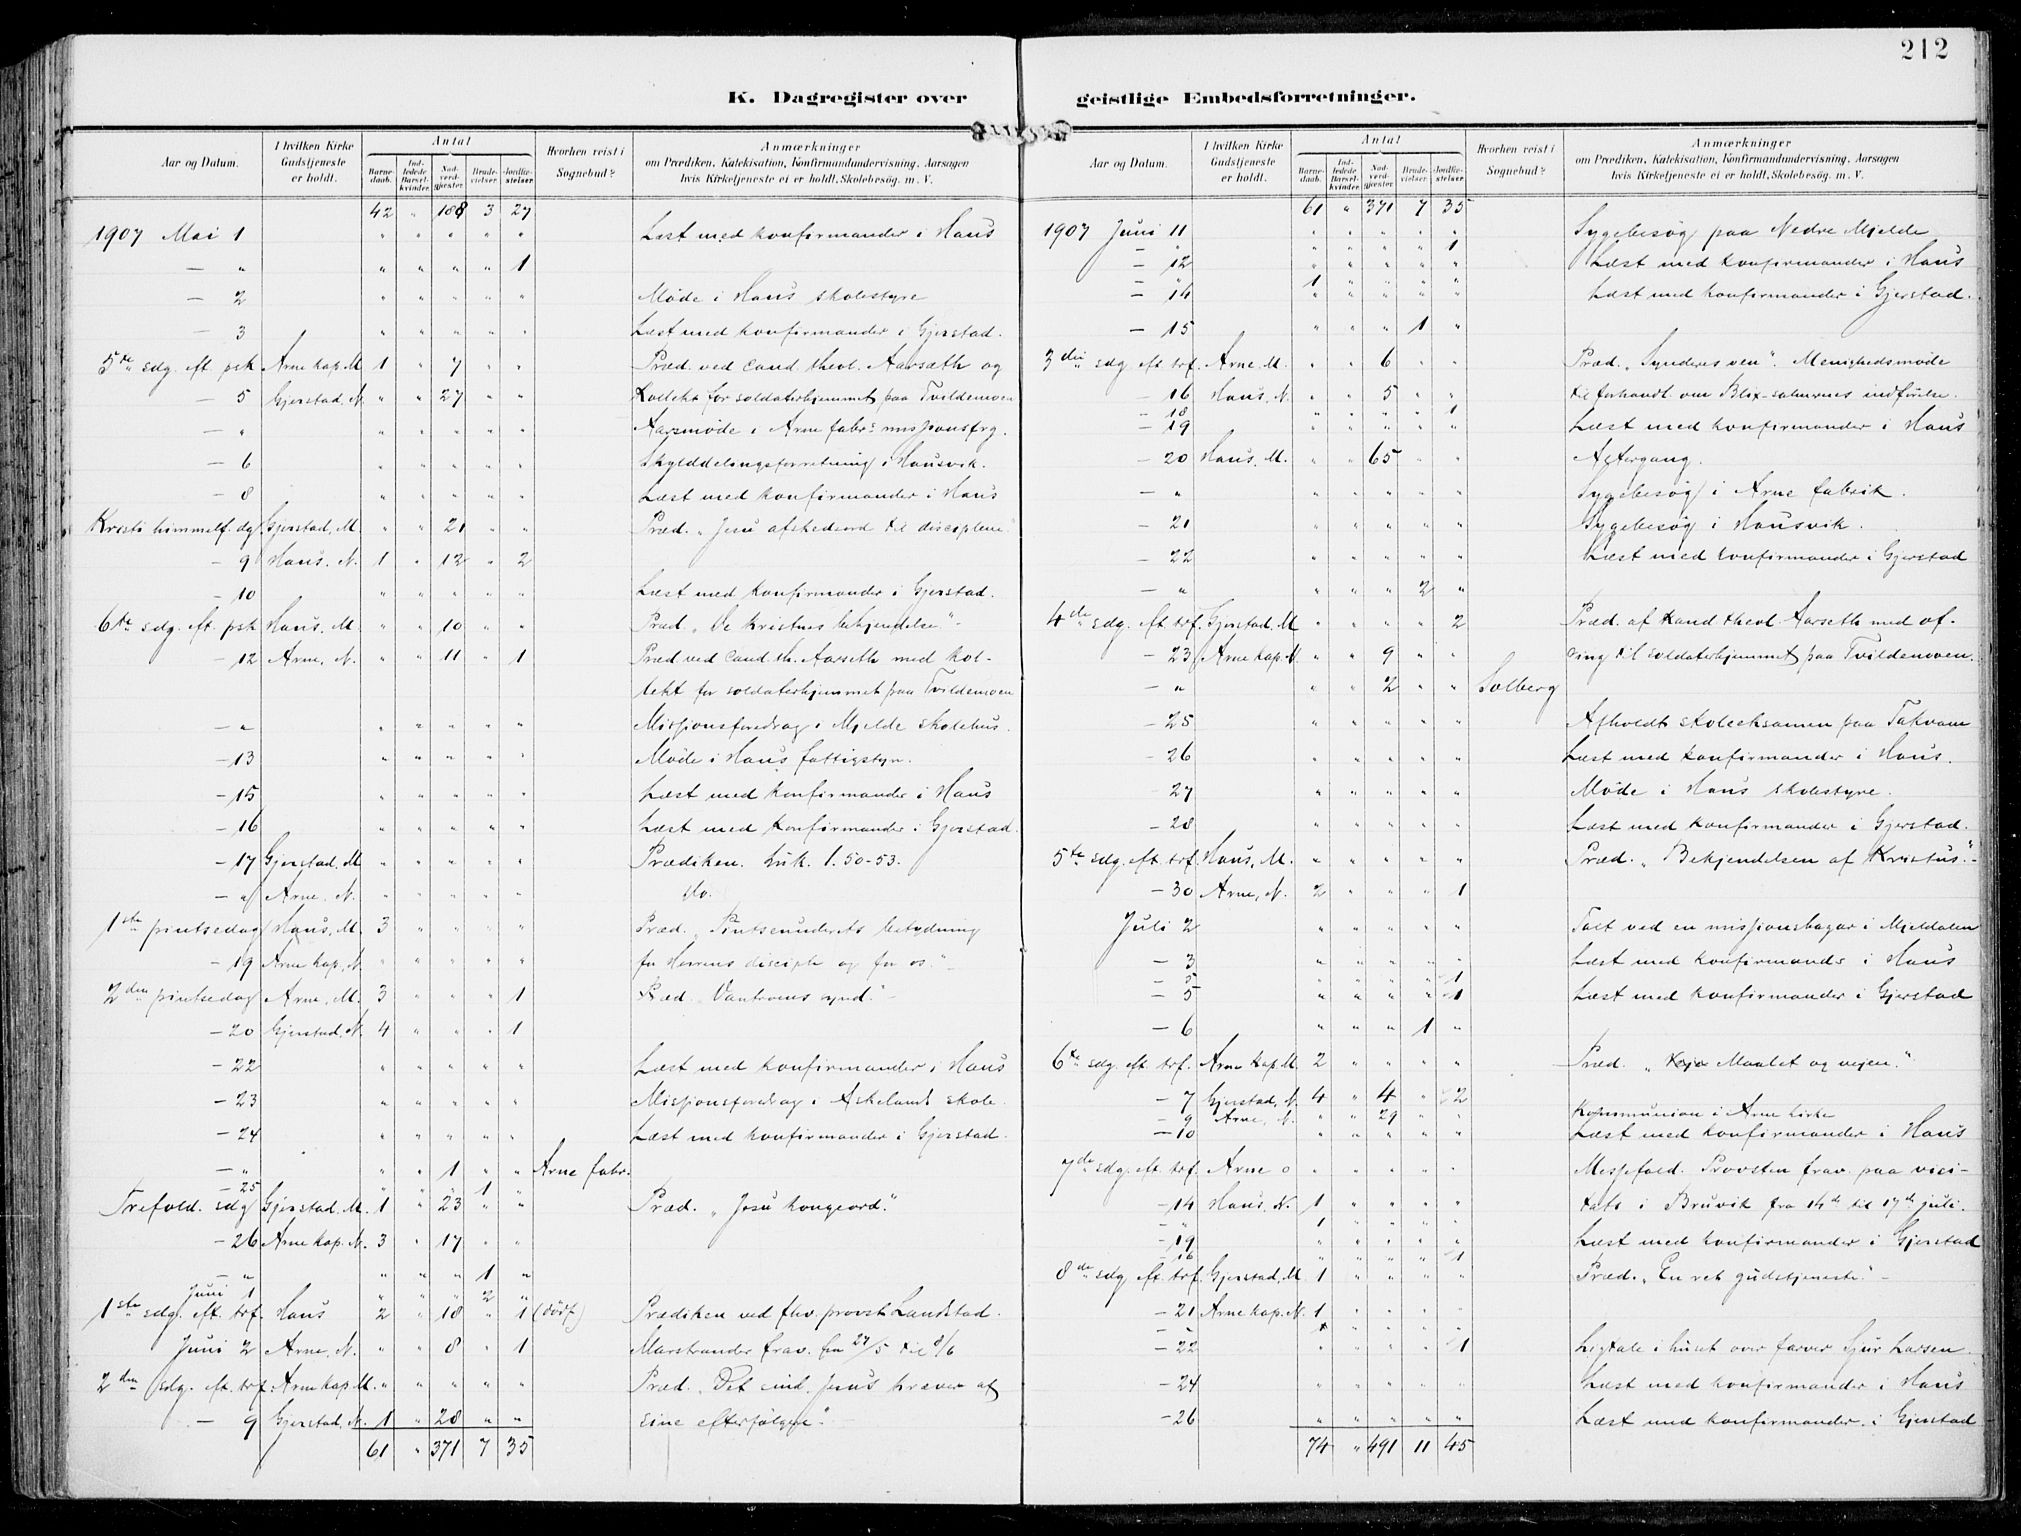 212
K. Dagregister over
Aar og Datum. I hvilken Kirke Gudstjeneste er holdt. Antal Barnedaab. Indledede Barselkvinder. Nadverdgjester. Brudevielser. Jordfæstelser. Hvorhen reist i Sognebud? Anmærkninger om Prædiken, Katekisation, Konfirmandundervisning, Aarsagen hvis Kirketjeneste ei er holdt, Skolebesøg. m. V.
42 " 188 3 27
1907 Mai 1 " " " " " Læst med konfirmander i Haus
— " " " " " 1
— 2 " " " " " Møde i Haus skolestyre
— 3 " " " " " Læst med konfirmander i Gjerstad.
5te sdg. eft. psk Arne kap. M 1 " 7 " " Præd. ved cand. theol. Aarseth og
— 5 Gjerstad, N. " " 27 " " Kollekt for soldaterhjemmet paa Tvildemoen
— " " " " " " Aarsmøde i Arne fabrs missjonsfrg.
— 6 " " " " " Skylddelingsforretning i Hausvik.
— 8 " " " " " Læst med konfirmander i Haus
Kristi himmelf. dg. Gjerstad, M. " " 21 " " Præd. "Jesu afskedsord til disciplene"
— 9 Haus. N. 1 " 12 " 2
— 10 " " " " " Læst med konfirmander i Gjerstad.
6te sdg. eft. psk Haus. M " " 10 " " Præd. "De kristnes bekjendelse"
— 12 Arne, N. " " 11 " 1 Præd ved cand. th. Aarseth med kol-
lekt for soldaterhjemmet paa Tvildemoen
— " " " " " " Missjonsforedrag i Mjelde skolehus.
— 13 " " " " " Møde i Haus fattigstyr.
— 15 " " " " " Læst med konfirmander i Haus
— 16 " " " " " Læst med konfirmander i Gjerstad.
— 17 Gjerstad, M " " " " " Prædiken. Luk. 1.50-53.
— " Arne, N. " " " " " do.
1ste pintsedag Haus, M. 3 " " " " Præd. "Pintseunderets betydning
— 19 Arne kap. N. " " " " " for Herrens disciple og for os."
2den pintsedag Arne, M. 3 " " " 1 Præd. "Vantroens synd."
— 20 Gjerstad, N. 4 " " " 1
— 22 " " " " " Læst med konfirmander i Haus
— 23 " " " " " Missjonsforedrag i Askelands skole.
— 24 " " " " " Læst med konfirmander i Gjerstad.
— " " " 1 " " Arne fabr.
— 25 " " " 1 "
Trefold. sdg Gjerstad. M. 1 " 23 " " Præd. "Jesu kongeord."
— 26 Arne kap. N. 3 " 17 " "
— " " " " 1 "
Juni 1 " " " 2 "
1ste sdg. eft. trf. Haus 2 " 18 " 1 (dødf) Prædiken ved fhv. provst Landstad.
Juni 2 Arne, N. " " 8 " 1 Marstrander frav. fra 27/5 til 8/6
2den sdg. eft. trf. Arne kap. M. " " " " " Præd. "Det eine Jesus kræver af
— 9 Gjerstad, N. 1 " 28 " " sine efterfølgere."
61 " 371 7 35
geistlige Embedsforretninger.
Aar og Datum. I hvilken Kirke Gudstjeneste er holdt. Antal Barnedaab. Indledede Barselkvinder. Nadverdgjester. Brudevielser. Jordfæstelser. Hvorhen reist i Sognebud? Anmærkninger om Prædiken, Katekisation, Konfirmandundervisning, Aarsagen hvis Kirketjeneste ei er holdt, Skolebesøg. m. V.
61 " 371 7 35
1907 Juni 11 " " " " " Sygebesøg paa Nedre Mjelde
— " " " " " 1
— 12 " " " " " Læst med konfirmander i Haus
— " 1 " " " "
— 14 " " " " " Læst med konfirmander i Gjerstad.
— 15 " " " 1 "
3die sdg eft. trf. Arne, M. " " 6 " " Præd. "Synderes ven". Menighedsmøde
— 16 Haus, N. " " 5 " " til forhandl. om Blix-salmernes indførelse.
— 18 " " " " 1
— 19 " " " " " Læst med konfirmander i Haus
— 20 Haus, M. " " 65 " " Altergang.
— " " " " " " Sygebesøg i Arne fabrik.
— 21 " " " " " Sygebesøg i Hausvik.
— 22 " " " " " Læst med konfirmander i Gjerstad
— " " " " 2 "
4de sdg. eft. trf. Gjerstad, M " " " " 2 Præd. af kand theol. Aarseth med of-
— 23 Arne kap. N. " " 9 " " ring til soldaterhjemmet paa Tvildemoen.
— " " " 2 " " Solberg
— 25 " " " " " Afholdt skoleeksamen paa Takvam
— 26 " " " " " Læst med konfirmander i Haus.
27 " " " " " Møde i Haus skolestyre.
— 28 " " " " " Læst med konfirmander i Gjerstad.
5te sdg. eft. trf. Haus, M. " " " " " Præd. "Bekjendelsen af Kristus."
— 30 Arne, N. 2 " " " 1
Juli 2 " " " " " Talt ved en missjonsbazar i Mjeldalen
— 3 " " " " " Læst med konfirmander i Haus
— 5 " " " " 1
— 5 " " " " 1 Læst med konfirmander i Gjerstad
— 6 " " " 1 "
6te sdg. eft. trf. Arne kap. M. 2 " " " " Præd. " Maalet og vejen."
— 7 Gjerstad, N. 4 " 4 " 2
— 9 Arne, N. " " 29 " " Kommunion i Arne kirke
— 10 " " " " " Læst med konfirmander i Haus
7de sdg. eft. trf. Arne o " " " " " Messefald. Provsten frav. paa visi-
— 14 Haus, N. 1 " " " " tats i Bruvik fra 14de til 17de juli.
— " 1 " " " "
— 19 " " " " " Læst med konfirmander i Gjerstad
16 " " " " 1
8de sdg. eft. trf. Gjerstad, M 1 " " " " Præd. "En ret gudstjeneste."
— 21 Arne kap. N. 1 " " " "
— " 1 " " " "
— 22 " " " " 1 Ligtale i huset over farver Sjur Larsen.
— 24 " " " " " Læst med konfirmander i Haus
— 26 " " " " " Læst med konfirmander i Gjerstad
74 " 491 11 45